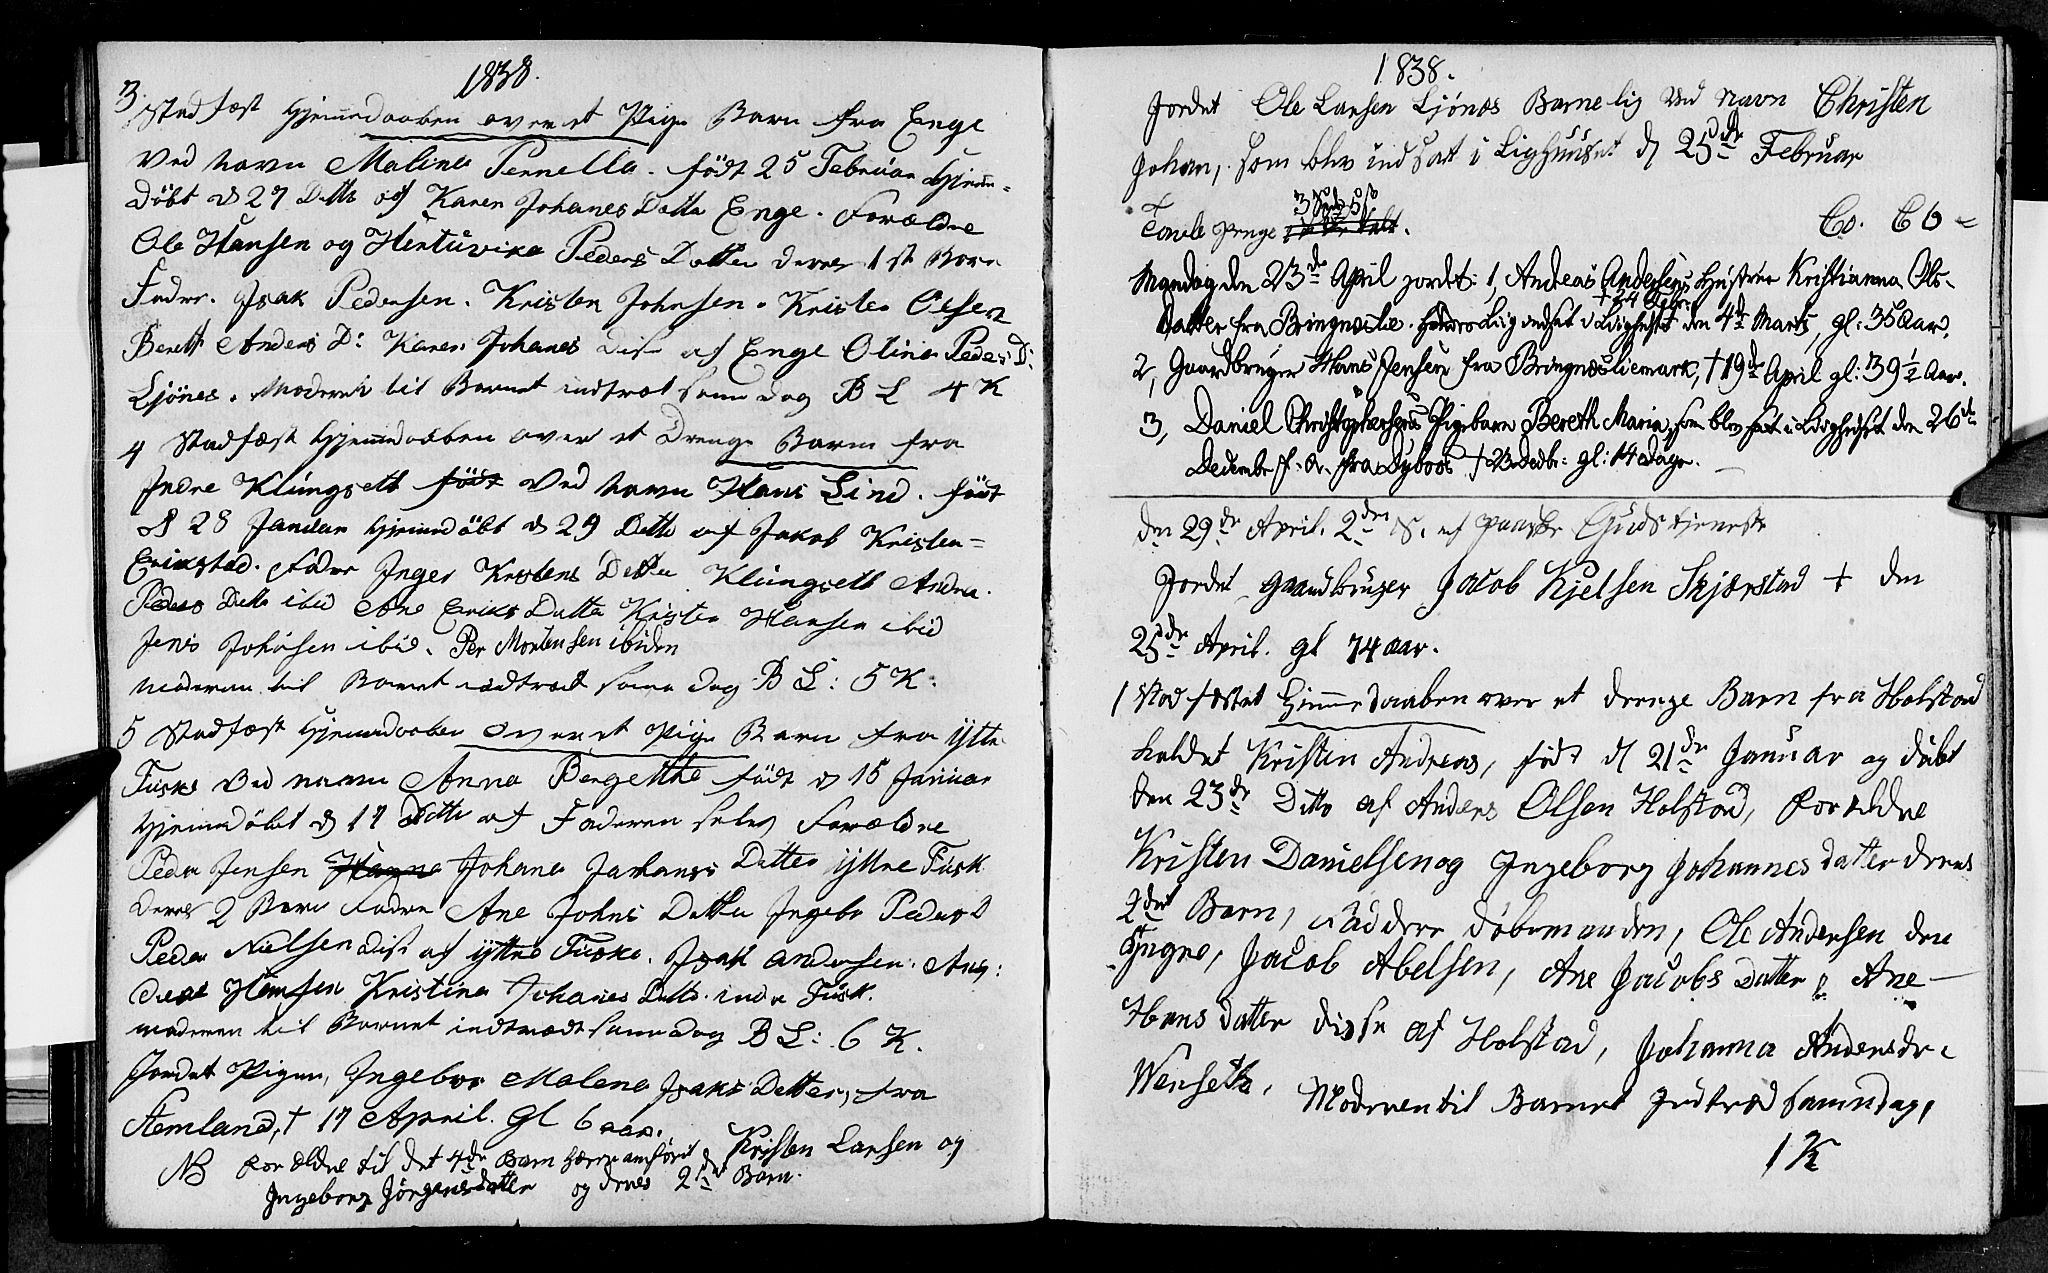 1838.
3. Stadfæst Hjemmedaaben over et Pige Barn fra Enge
Ved navn Malina Pernella. födt 25 Februar Hjem=
döbt d 27 Ditto af Karen Johanes Datte Enge. Forældre
Ole Hansen og Peders Datter deres 1st Barn
Fadre. Isak Pedersen. Kristen Johnsen. Kristen Olsen
Bereth Anders D: Karen Johanes Disse af Enge Olina Peders D:
Ljönes. Moderen til Barnet indtrat samme dag B L 4 K
4 Stadfæst Hjemmedaaben over et Drenge Barn fra
Indre Klungseth födt Ved navn Hans Lind. födt
d 28 Januar Hjemmdöbt d 29 Ditto af Jakob Kristen=
Erikstad. Fadre Inger Kristens Datte Klungseth Andrea
Peders Datte ibid Ane Eriks Datte Kristen Hansen ibid
Jens Johnsen ibid. Per Mortensen ibiden
moderen til Barnet indtrædt same dag B L: 5 K.
5 Stadfæst Hjemmedaaben over et Pige Barn fra ytte
Fuske Ved navn Anna Bergethe födt d 15 Januar
Hjemmdöbt d 17 Ditto af Faderen selv Forældre
Peder Jensen Johana Datter yttre Fusk
deres 2 Barn Fadre Ane Johns Datter Ingebor Peders D
Peder Nielsen Disse af yttre Fuske. Isak Andersen. Ane:
Hemsen Kristina Johanes Datte indre Fusk.
moderen til Barnet indtrædt samme dag B L: 6 K.
Jordet Pigen, Ingebor Malena Isaks Datter, fra
Hemland, † 17 April. Gl 6 aar.
NB Forældre til det 4de Barn anfört Kristen Larsen og
Ingeborg Jörgensdatter og deres 2det Barn.
1838.
Jordet Ole Larsen Ljönes Barnelig Ved Navn Christen
Johan, som blev indsat i Liighuuset d 25de Februar
Tavle Penge 3
Mandag den 23de April jordet: 1, Andreas Andersens Hustrue Kristianna Ols-
Datter fra Bringneslie. Liig indsat i Liighuset den 4de Marts, gl: 35 Aar.
2, Gaardbruger Hans Jensen fra Bringnesliemark, † 19de April gl: 39 1/2 Aar.
3, Daniel Christophersens Pigebarn Bereth Maria, som blev sat i Liighuset den 26de
Decembr f. A. fra † 23 Decbr: gl: 14 dage.
den 29de April. 2den S. ef paaske Gudstjeneste
Jordet gaardbruger Jacob Kjelsen Skjærstad † den
25de April. gl 74 aar.
1 stadfæstet Hjemmedaaben over et drenge Barn fra Holstad
kaldet Kristen Andreas, föd d 21de Januar og döbt
den 23de Ditto af Anders Olsen Holstad, Forældre
Kristen Danielsen og Ingeborg Johannes datter deres
2det Barn, Faddere döbemanden, Ole Andersen den
yngre, Jacob Abelsen, Ane Jacobs Datter & Ane-
Hans datter disse af Holstad, Johanna Andersdr.
Wenseth, Moderen til Barnet Indtræd samme dag,
1 K